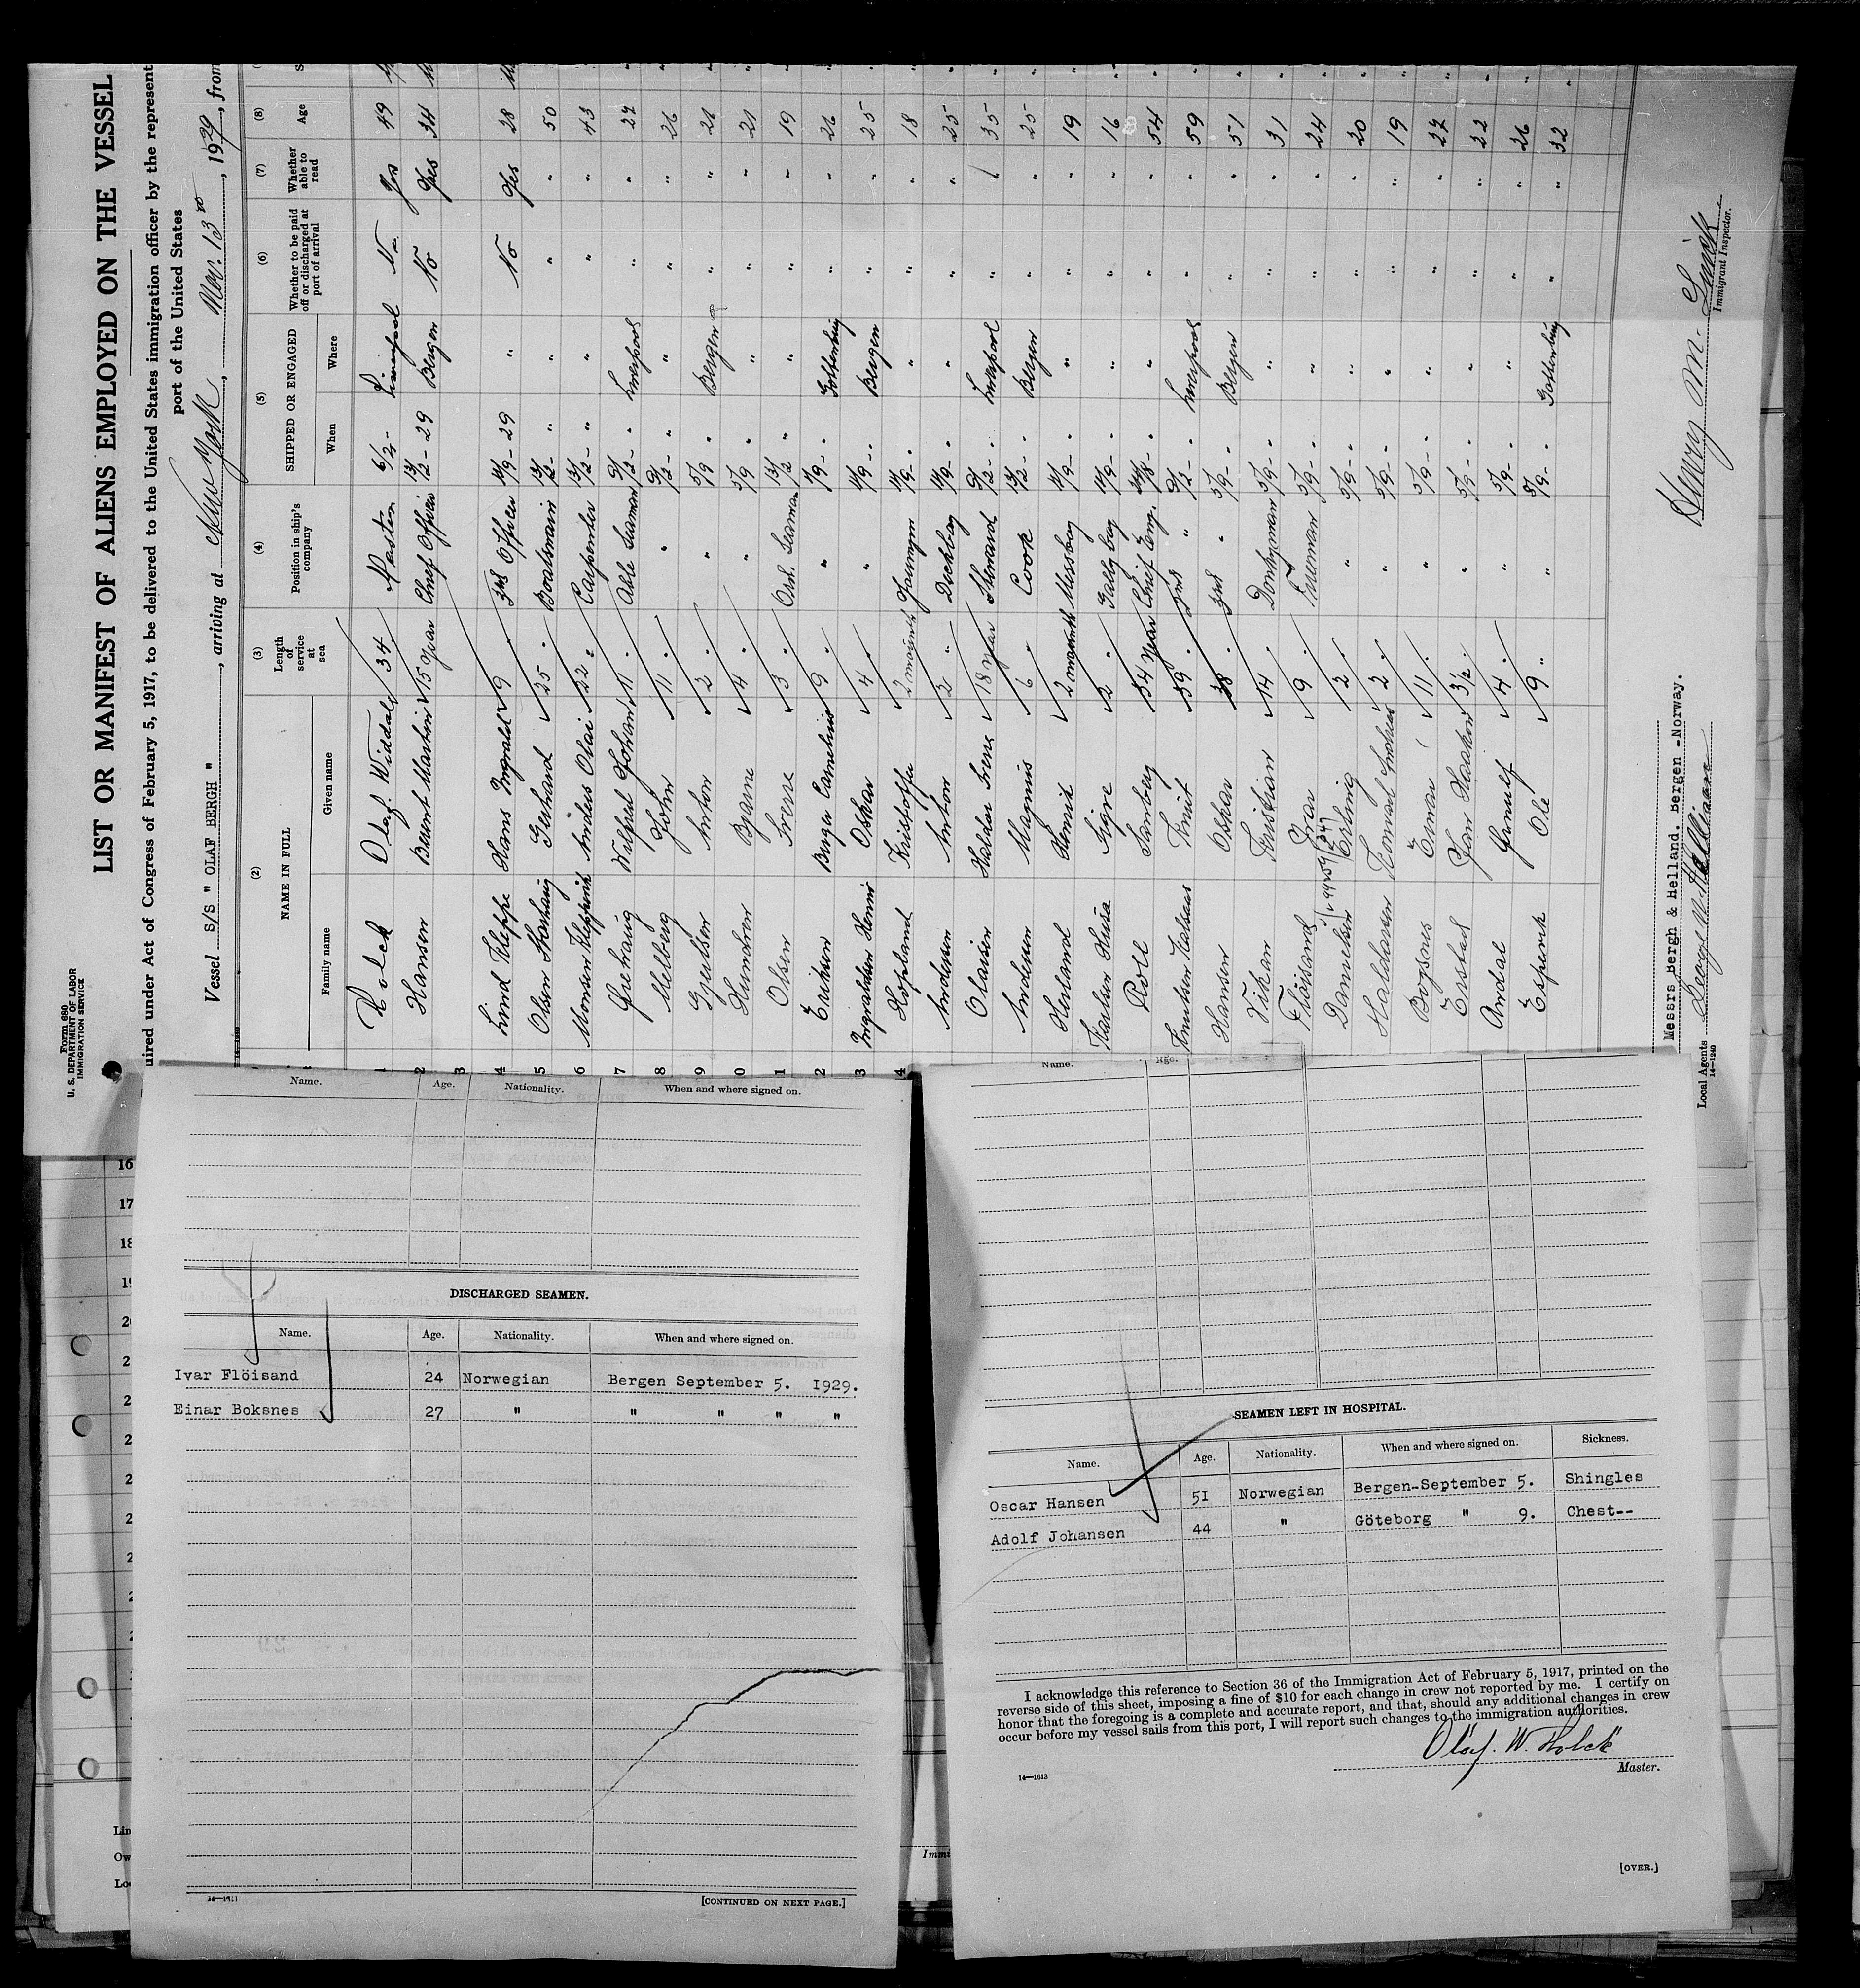 Form 680
U. S. DEPARTMENT OF LABOR
IMMIGRATION SERVICE
LIST OR MANIFEST OF ALIENS EMPLOYED ON THE VESSEL
uired under Act of Congress of February 5, 1917, to be delivered to the United States immigration officer by the represent
port of the United States
Vessel S/S " OLAF BERGH ", arriving at New York, Nov. 13, 1929, from
(2) (3) (4) (5) (6) (7) (8)
NAME IN FULL Length of service at sea Position in ship's company SHIPPED OR ENGAGED Whether to be paid off or discharged at port of arrival Whether able to read Age
Family name Given name When Where
1 Holck Olaf. Widdal 34 Master 6/2 - Liverpool No Yes 49
2 Hansen Bernt Martin 15 Year Chief Officer 13/2 - 29 Bergen No Yes 34
3
4 Lund Kleppe Hans Ingvald 9 3rd Officer 14/9 - 29 " No Yes 28
5 Olsen Gerhard 25 Boatsmain 13/2 - " " " " 50
6 Monsen Anders Olai 22 Carpenter 13/2 - " " " " 43
7 Vilhjul Johan 11 Able Seaman 9/2 - " Liverpool " " 27
8 Melberg John 11 " 9/2 - " " " " 26
9 Gjertsen Anton 2 " 5/9 " Bergen " " 21
0 Bjarne 4 " 5/9 " " " " 21
1 Olsen Sverre 3 Ord. Seaman 13/2 " " " " 19
2 Eriksen Birger Cornelius 9 " 9/9 - " Gottenburg " " 26
3 Ingvaldsen Oskar 4 " 14/9 - " Bergen " " 25
4 Hopland Kristoffer 2 months Jaungm 14/9 - " " " " 18
Andersen Anton 2 " Deckboy 14/9 - " " " " 25
Olaisen Halder Sverre 18 year Steward 9/2 - " Liverpool " 35
Andersen Magnus 6 " Cook 13/2 - " Bergen " " 25
Herland Henrik 2 months Messboy 14/9 - " " " " 19
Karlsen Husa Sigre 2 " Galleyboy 14/9 - " " " " 16
Roll 34 Year Chief Eng. " " " 54
Knutsen Knut 39 " 2nd " 9/2 - " Liverpool " " 59
Hansen Oskar 28 3rd " 5/9 - " Bergen " " 51
Vikan Kristian 14 " Donkeyman 5/9 - " " " " 31
Flöisand Ivar 9 " Fireman 5/9 - " " " " 24
Danielsen Erling 2 " " 5/9 - " " " " 20
Haldorsen Konrad Andreas 2 " " 5/9 - " " " " 19
Boksnes Einar 11 " " 5/9 - " " " " 27
Erstad Jan Haakon 3½ " " 5/9 - " " " " 22
Ardal Gunulf 4 " " 5/9 - " " " " 26
Espevik Ole 9 " " 9/9 - " Gottenburg " " 32
Messrs Bergh & Helland. Bergen -Norway.
Local Agents
14—1240
Henry M. Smith
Immigrant Inspector.
16
17
18
Name. Age. Nationality. When and where signed on.
DISCHARGED SEAMEN.
Name. Age. Nationality. When and where signed on.
Ivar Flöisand 24 Norwegian Bergen September 5. 1929.
Einar Boksnes 27 " " " " "
14—1611
[CONTINUED ON NEXT PAGE.]
Name. Age.
SEAMEN LEFT IN HOSPITAL.
Name. Age. Nationality. When and where signed on. Sickness.
Oscar Hansen 51 Norwegian Bergen-September 5. Shingles
Adolf Johansen 44 " Göteborg " 9. Chest--
I acknowledge this reference to Section 36 of the Immigration Act of February 5, 1917, printed on the
reverse side of this sheet, imposing a fine of $10 for each change in crew not reported by me. I certify on
honor that the foregoing is a complete and accurate report, and that, should any additional changes in crew
occur before my vessel sails from this port, I will report such changes to the immigration authorities.
Olaf. W. Holck
Master.
14—1613
[OVER.]